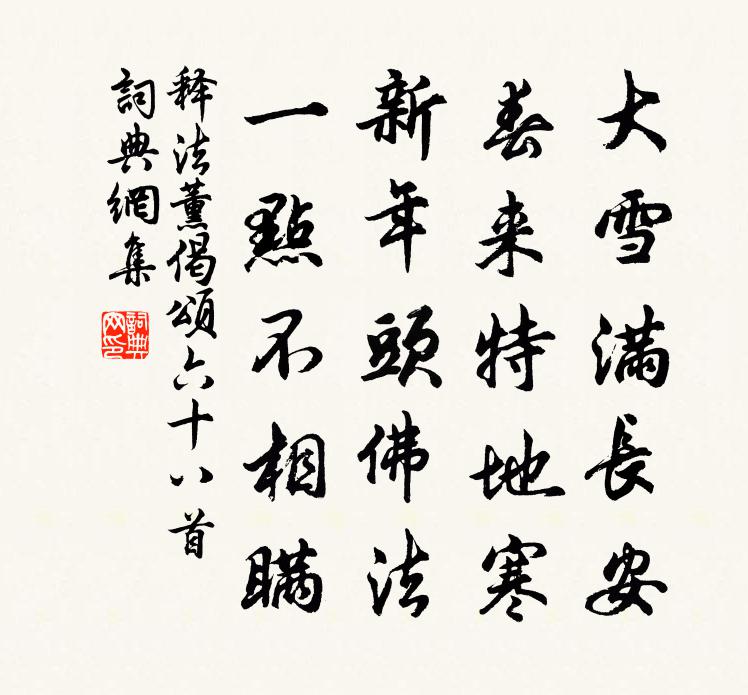 大雪滿長安
春来特地寒
新年頭佛法
一點不相瞞
释法薰偈頌六十八首
詞典網集
詞典网印